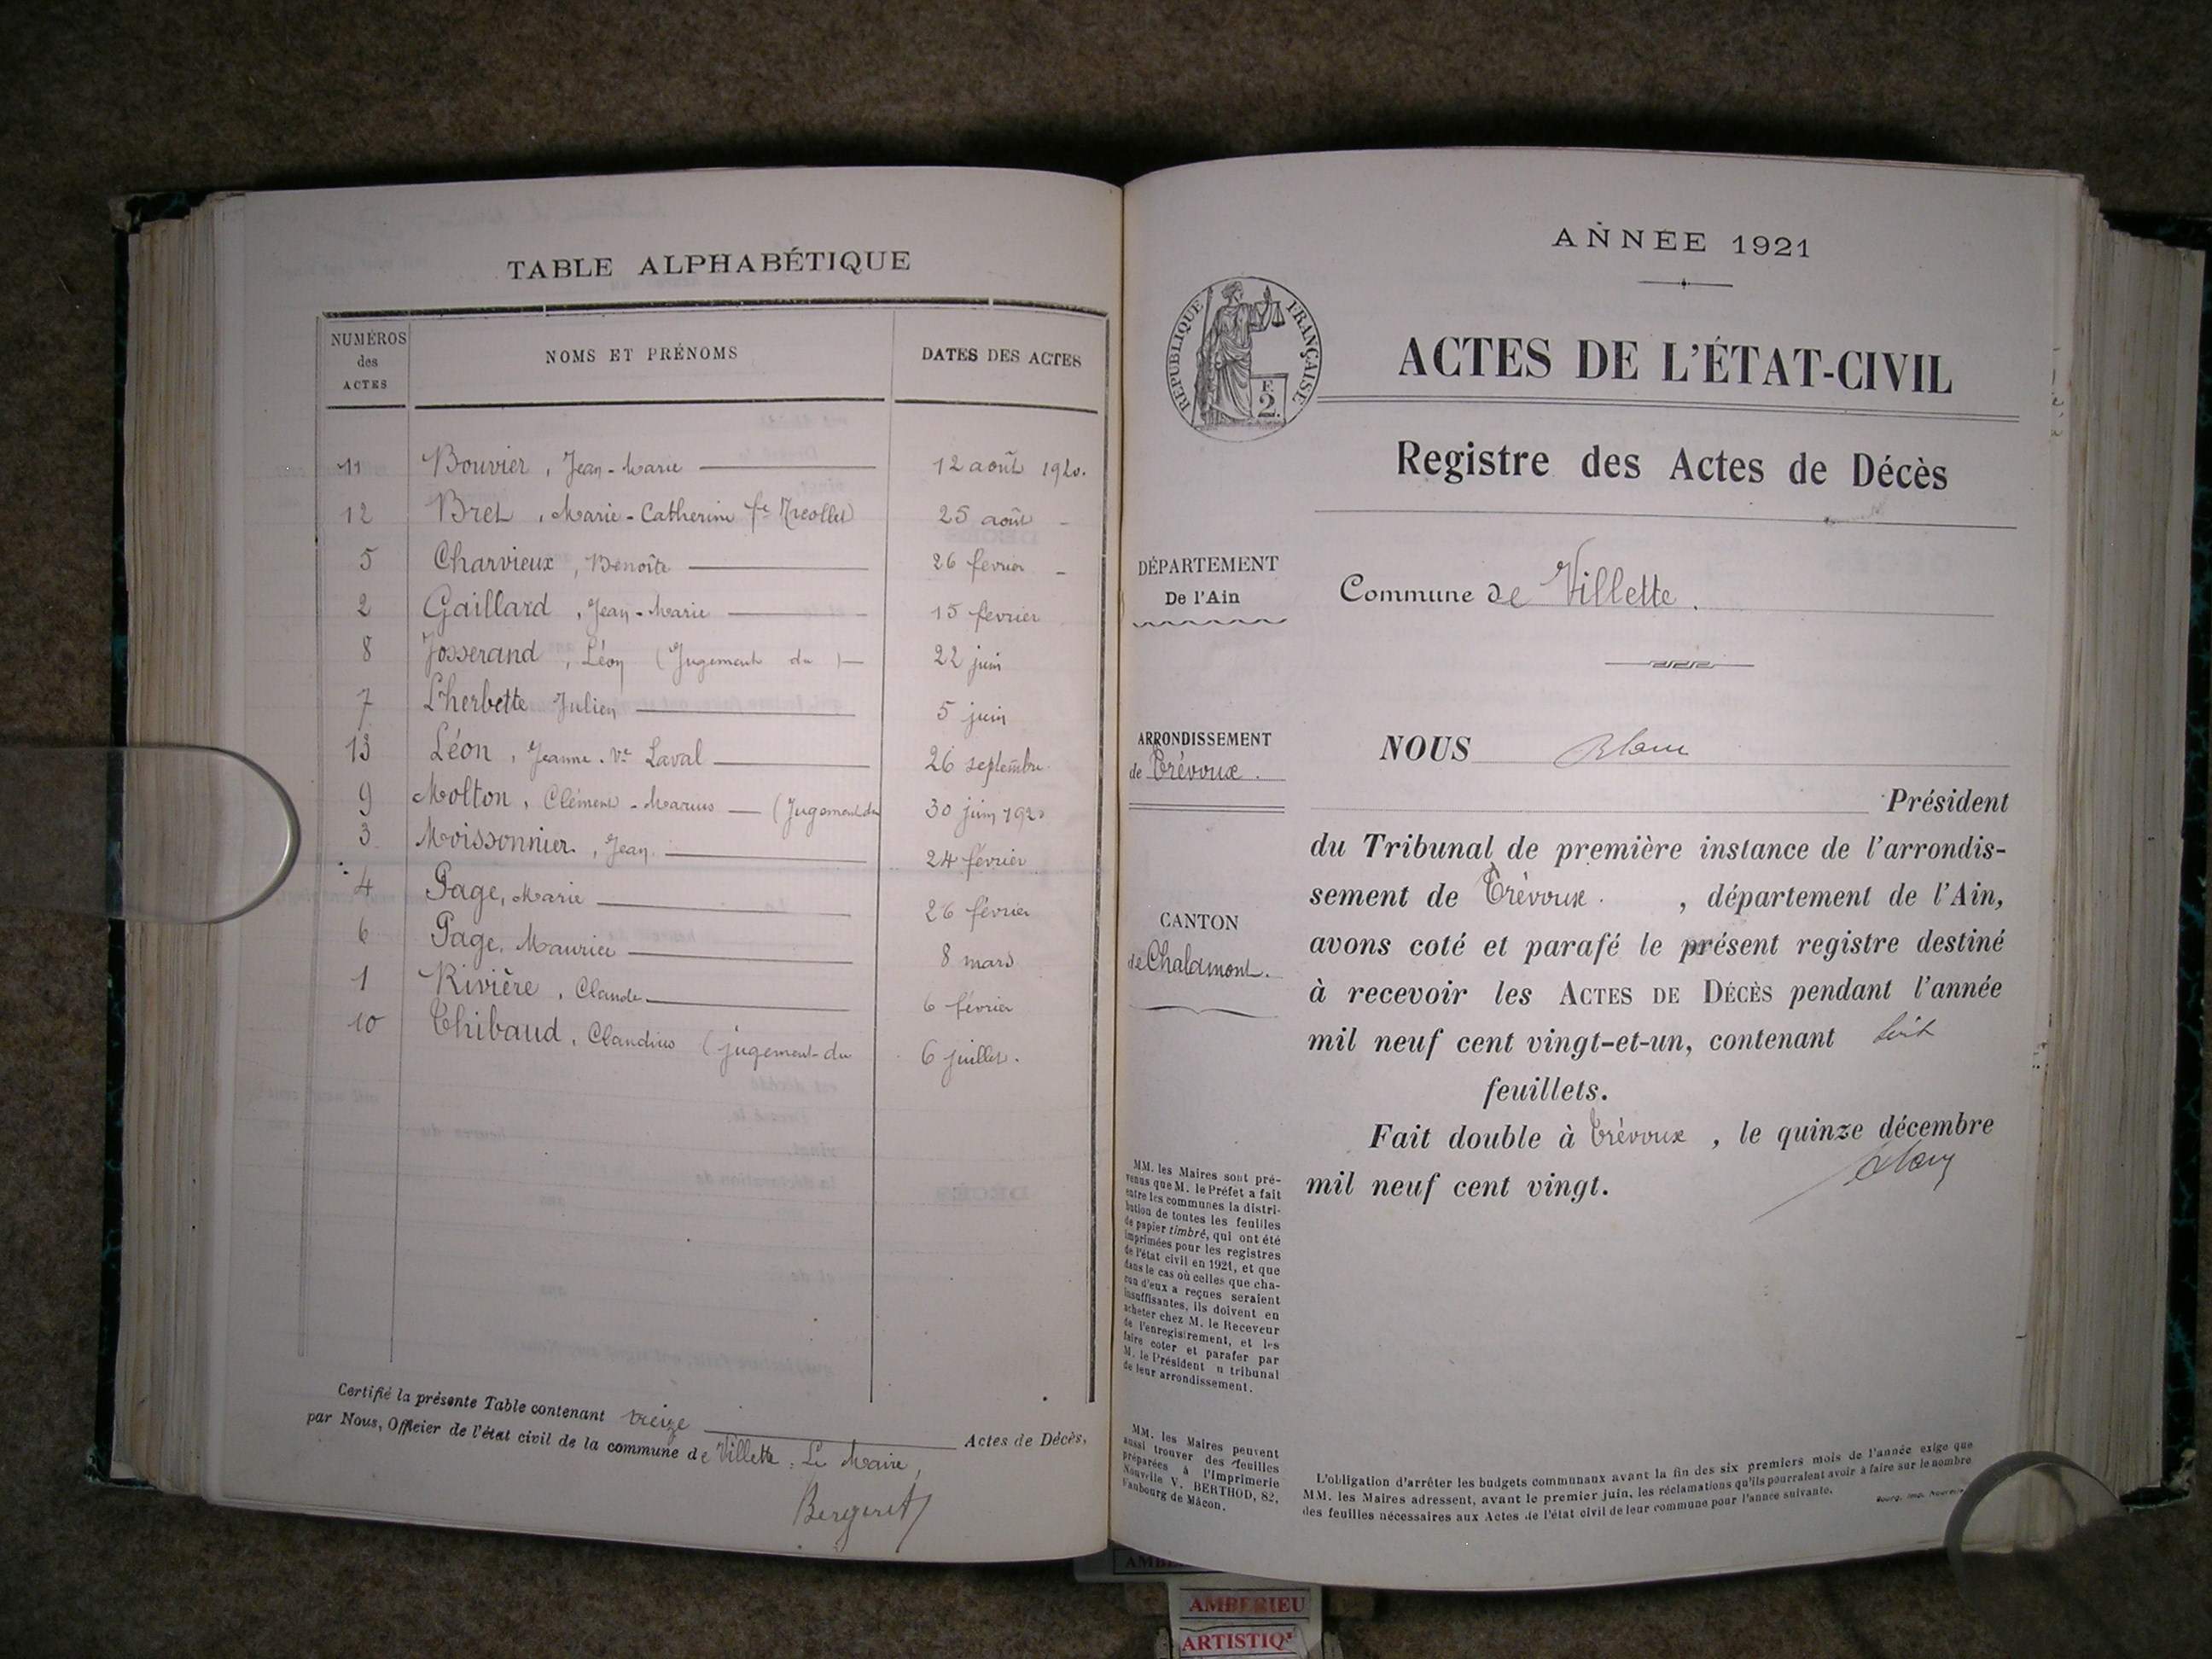 TABLE ALPHABÉTIQUE
NUMÉROS des ACTES
NOMS ET PRÉNOMS
DATES DES ACTES
11 Bouvier, Jean-Marie 12 août 1920.
12 Bret, Marie-Catherine fe 25 août -
5 Charvieux, Benoîte 26 février -
2 Gaillard, Jean-Marie 15 février
8 Josserand, Léon (Jugement du ) 22 juin
7 Lherbette Julien 5 juin
13 Léon, Jeanne. Ve Laval 26 septembre.
9 Molton, Clément-Marius (Jugement du 30 juin 1920
3 Moissonnier, Jean 24 février
4 Page, Marie 26 février
6 Page, Maurice 8 mars
1 Rivière, Claude 6 février
10 Thibaud, Claudius (jugement du 6 juillet.
Certifié la présente Table contenant treize Actes de Décès,
par Nous, Officier de l'état civil de la commune de Villette. Le Maire,
Bergeret
ANNÉE 1921
RÉPUBLIQUE FRANÇAISE
F.
2.
ACTES DE L'ÉTAT-CIVIL
Registre des Actes de Décès
DÉPARTEMENT
De l'Ain
Commune de Villette.
ARRONDISSEMENT
de Trévoux.
CANTON
de Chalamont.
NOUS
Président
du Tribunal de première instance de l'arrondis-
sement de Trévoux. , département de l'Ain,
avons coté et parafé le présent registre destiné
à recevoir les ACTES DE DÉCÈS pendant l'année
mil neuf cent vingt-et-un, contenant huit
feuillets.
Fait double à Trévoux , le quinze décembre
mil neuf cent vingt.
MM. les Maires sont pré-
venus que M. le Préfet a fait
entre les communes la distri-
bution de toutes les feuilles
de papier timbré, qui ont été
imprimées pour les registres
de l'état civil en 1921, et que
dans le cas où celles que cha-
cun d'eux a reçues seraient
insuffisantes, ils doivent en
acheter chez M. le Receveur
de l'enregistrement, et les
faire coter et parafer par
M. le Président n tribunal
de leur arrondissement.
MM. les Maires peuvent
aussi trouver des feuilles
préparées à l'Imprimerie
Nouvelle V. BERTHOD, 82,
Faubourg de Mâcon.
L'obligation d'arrêter les budgets communaux avant la fin des six premiers mois de l'année exige que
MM. les Maires adressent, avant le premier juin, les réclamations qu'ils pourraient avoir à faire sur le nombre
des feuilles nécessaires aux Actes de l'état civil de leur commune pour l'année suivante.
Bourg, imp.
AMBERIEU
ARTISTIQ